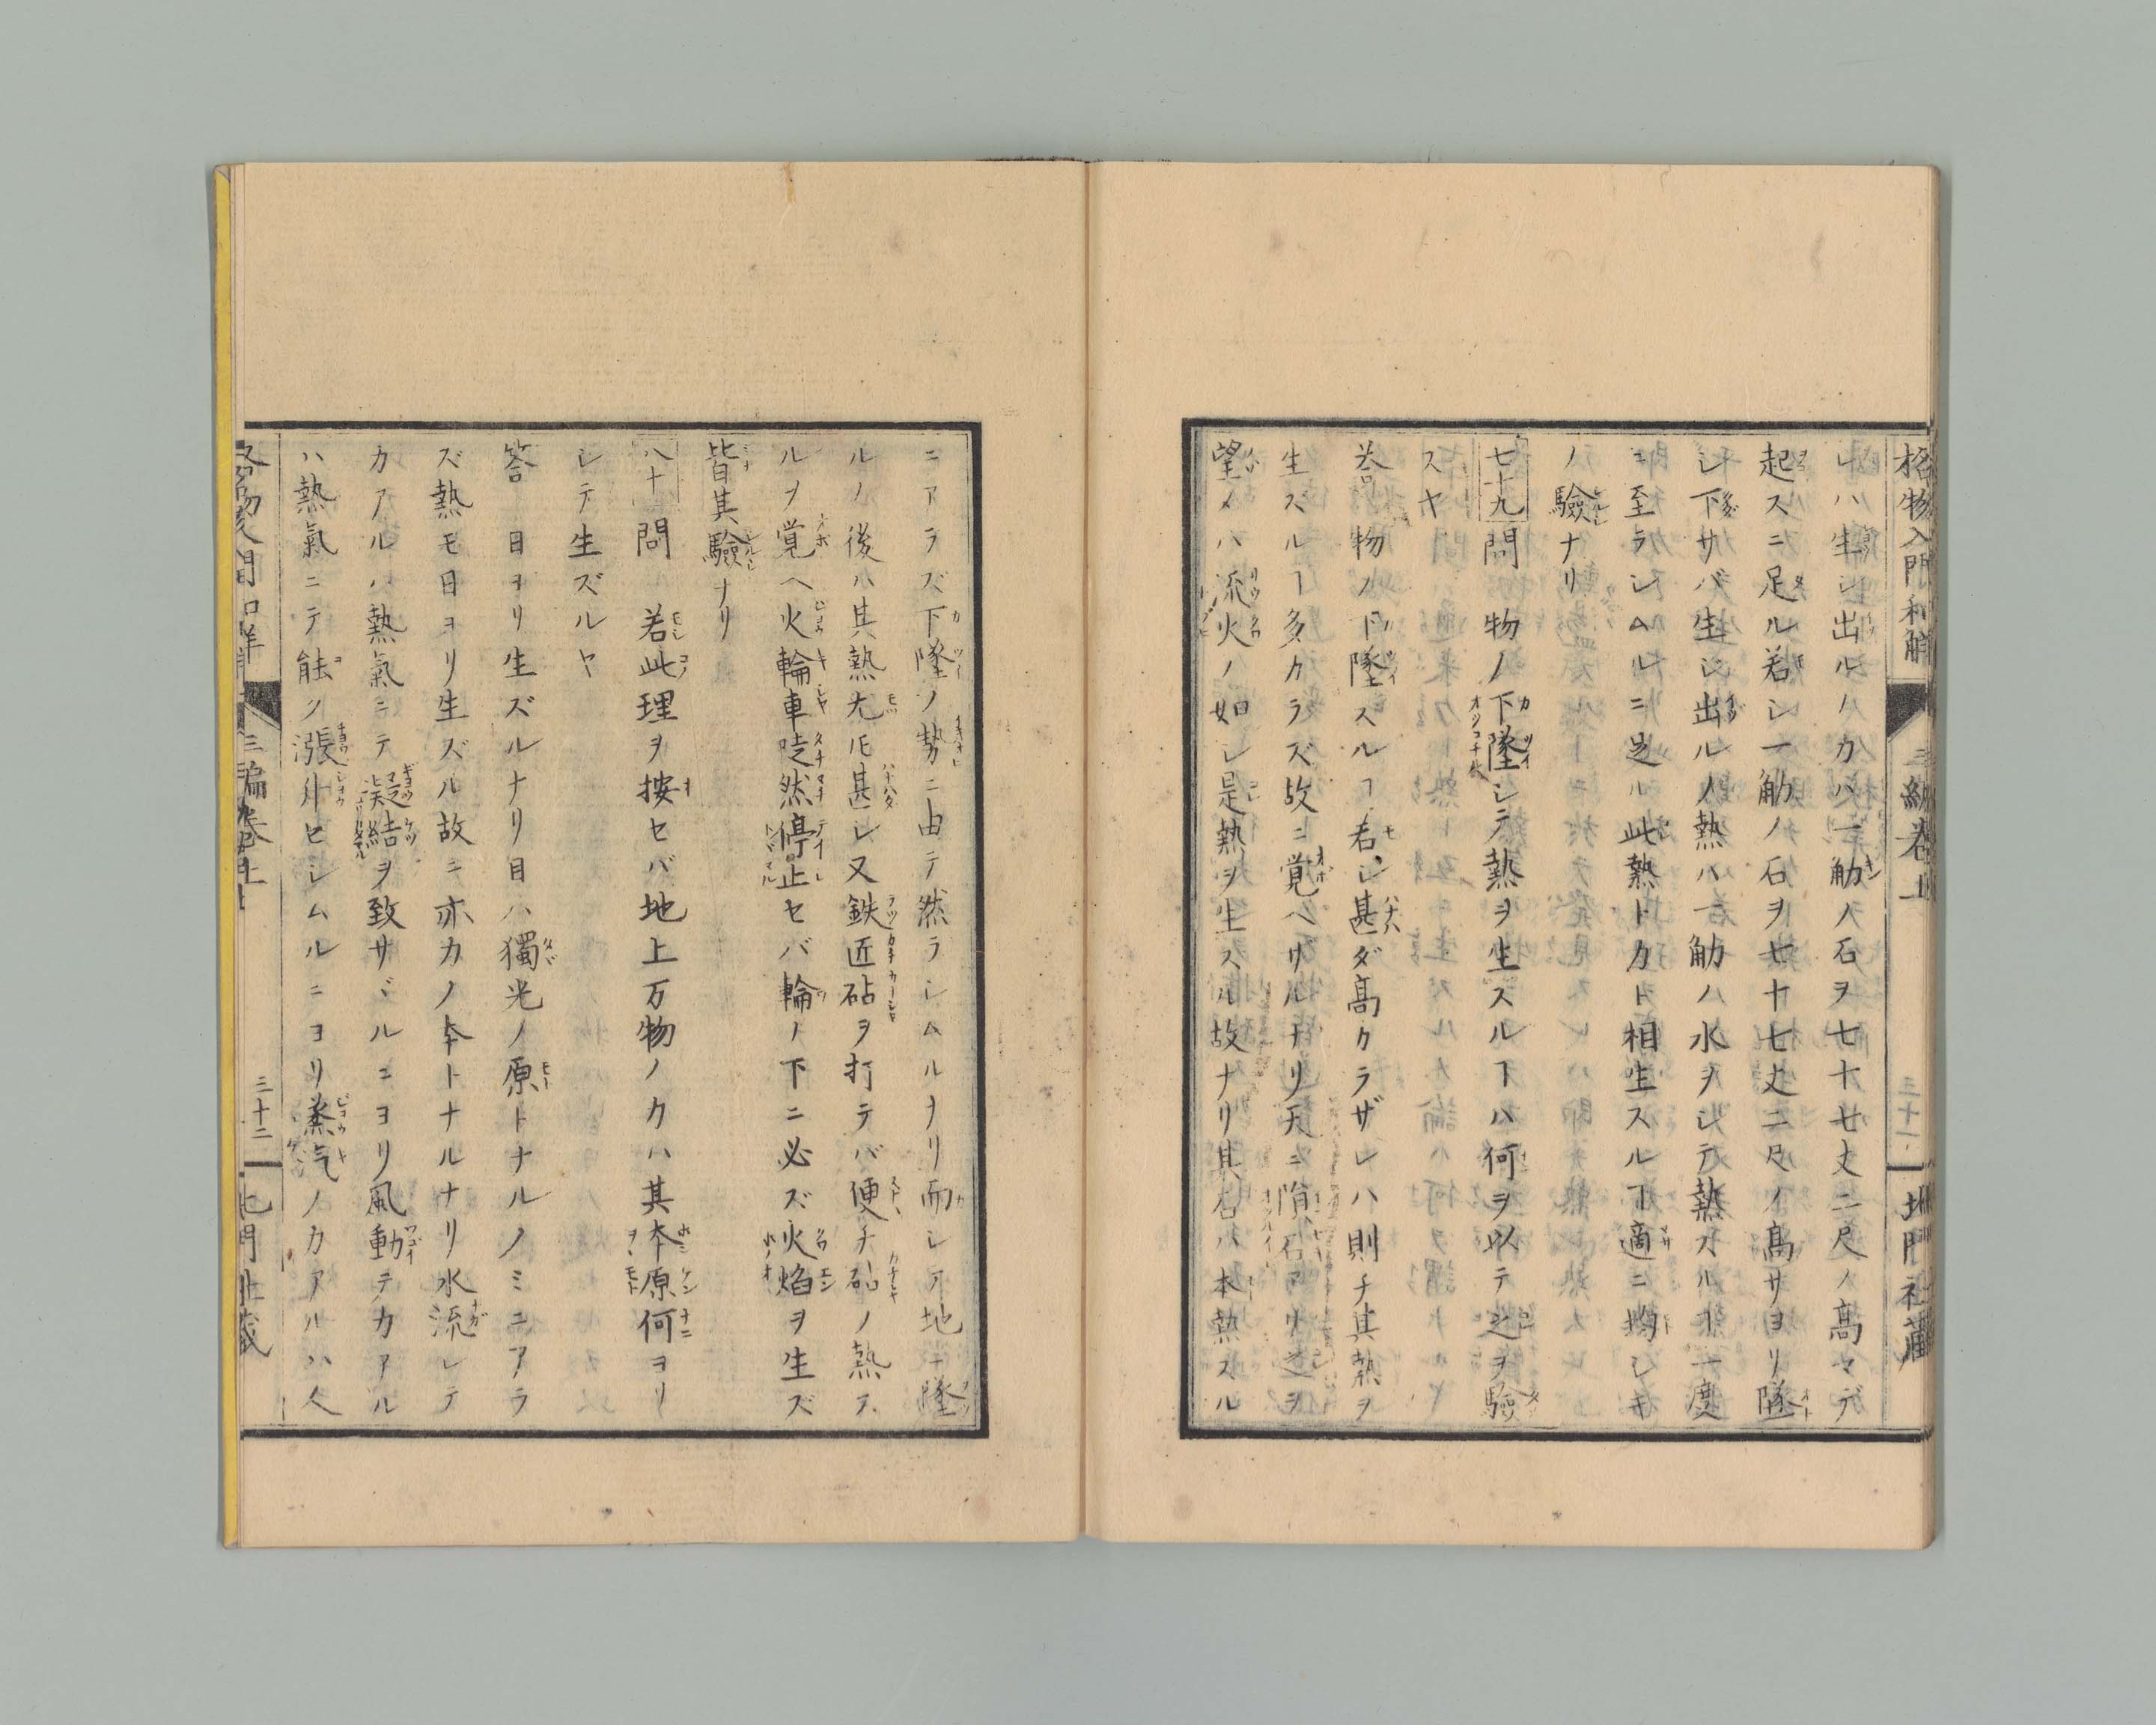 格物入門和解 三編巻上 三十一 北門社蔵
レハ生シ出ルノカハ一觔ノ石ヲ七十七丈二尺ノ高マデ
起スニ足ル若シ一觔ノ石ヲ七十七丈二尺ノ高サヨリ墜
シ下サバ生シ出ルノ熱ハ一觔ノ水ヲシテ熱スルヿ一度
ニ至ラシムルニ足ル此熱ト力ト相生スルヿ適ニ均シキ
ノ驗ナリ
七十九問 物ノ下墜シテ熱ヲ生スルヿハ何ヲ以テ之ヲ驗
スヤ
答 物ノ下墜スルヿ若シ甚ダ高クラザレハ則チ其熱ヲ
生ズルヿ多カラズ故ニ覚ヘザルナリ天ニ隕石アリ之ヲ
望メハ流火ノ如シ是熱ヲ生スル故ナリ其石ハ本熱スル
ニアラズ下墜ノ勢ニ由テ然ラシムルナリ而シテ地ニ墜
ルノ後ハ其熱尤モ甚シ又鉄匠砧ヲ打テバ便チ砧ノ熱ス
ルヲ覚ヘ火輪車陡然停止セバ輪ノ下ニ必ズ火焰ヲ生ズ
皆其驗ナリ
八十問 若此理ヲ按セバ地上万物ノ力ハ其本原何ヨリ
シテ生ズルヤ
答 日ヨリ生ズルナリ日ハ獨光ノ原トナルノミニアラ
ズ熱モ日ヨリ生ズル故ニ亦力ノ本トナルナリ水流レテ
力アルハ熱氣ニテ凝結ヲ致サヾルニヨリ風動テ力アル
ハ熱氣ニテ能ク漲升セシムルニヨリ蒸汽ノ力アルハ人
格物入門和解 三編巻上 三十二 北門社蔵